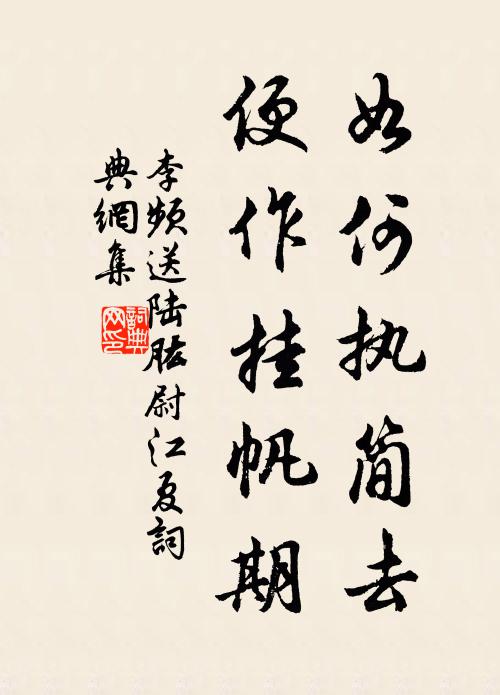 如何执简去
便作挂帆期
李频送陆肱尉江夏詞
典網集
詞典網印